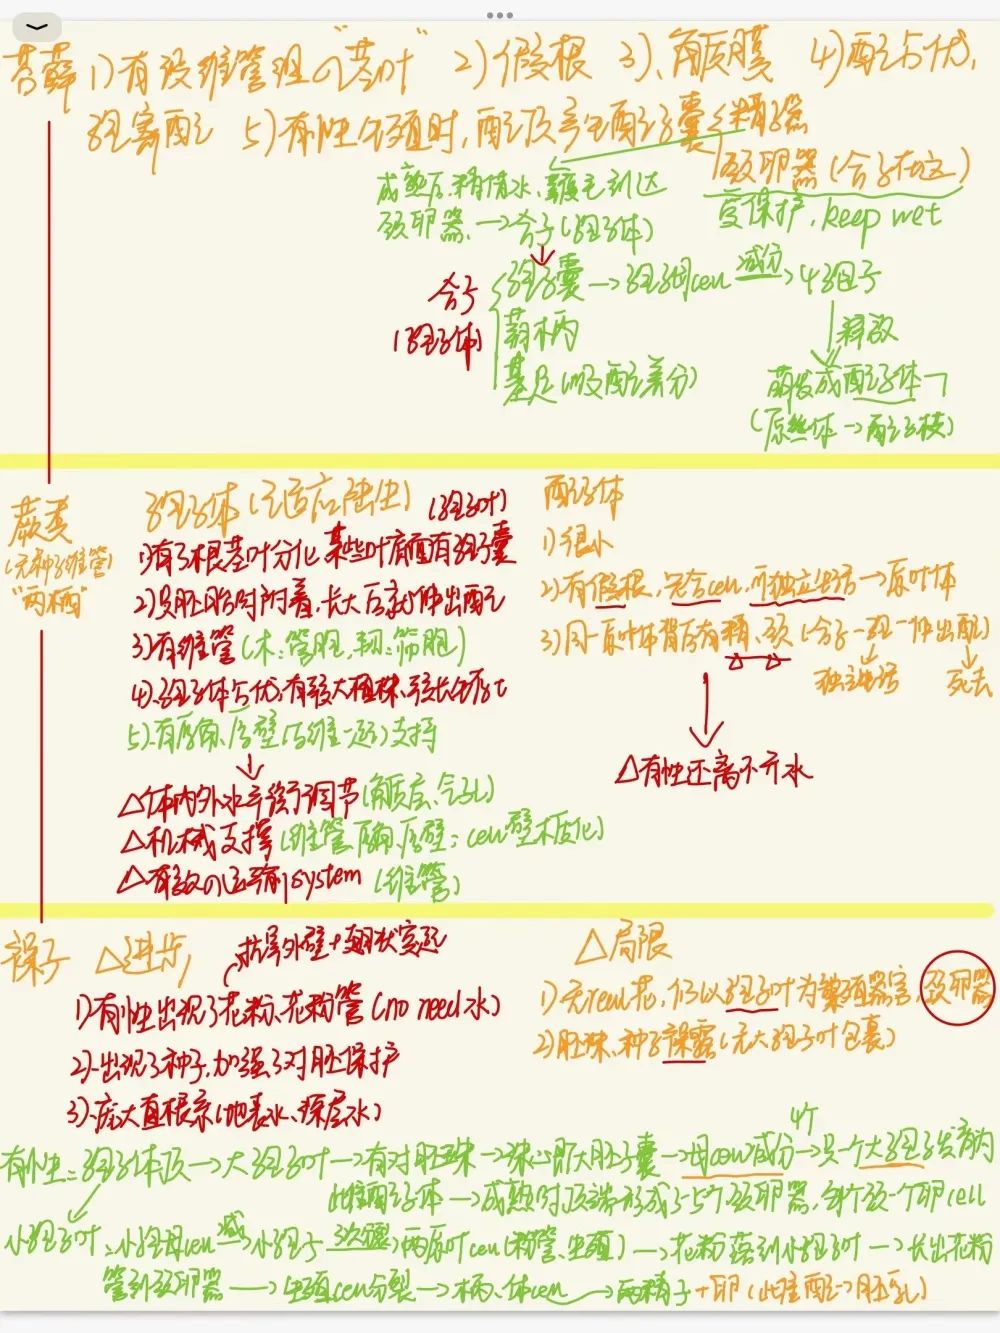 苔藓 1)有没维管组の"茎叶" 2)假根 3)、角质膜 4)配子占优,
孢寄配子 5)有性生殖时,配子顶产生配子囊 精子器
颈卵器(合子在这)
成熟后,精借水、鞭毛到达
颈卵器 → 合子(孢子体)
受保护,keep wet
合子
(孢子体)
孢子囊 → 孢母cell 减分→ 4孢子
蒴柄
基足(吸配养分)
释放
萌发成配子体
(原丝体→配子枝)
蕨类
(无种子维管)
"两栖"
孢子体(适应陆生)
(孢子叶)
1)有了根茎叶分化,某些叶底面有孢子囊
2)只胚胎时附着,长大后就伸出配子
3)有维管(木:管胞,韧:筛胞)
4)、孢子体占优,有较大植株、较长生存t
5)、有厚角、厚壁(与维一起)支持
△体内外水平衡调节(角质层、气孔)
△机械支撑(维管、厚角、厚壁:cell壁木质化)
△有效の运输system (维管)
配子体
1)很小
2)有假根,含cell,可独立生活 → 原叶体
3)同一原叶体背后有精、颈(合子一孢一伸出配)
独立生活 死去
△有性还离不开水
裸子 △进步
抗旱外壁+翅状突起
1)有性出现了花粉、花粉管(no need 水)
2)、出现了种子,加强了对胚保护
3)、庞大直根系(地表水、深层水)
△局限
1)无real花,仍以孢子叶为繁殖器官,颈卵器
2)胚珠、种子裸露(无大孢子叶包裹)
4个
有性:孢子体顶→大孢子叶→有对胚珠→珠心即大孢子囊→母cell减分→只一个大孢子发育为
雌配子体→成熟时顶端形成3-5个颈卵器,每个颈一个卵cell
小孢子叶:小孢母cell 减→小孢子 →两原叶cell(粉管、生殖)→花粉落到小孢子叶→长出花粉
管到颈卵器→生殖cell分裂→柄、体cell→两精子+卵(此雌配→胚乳)